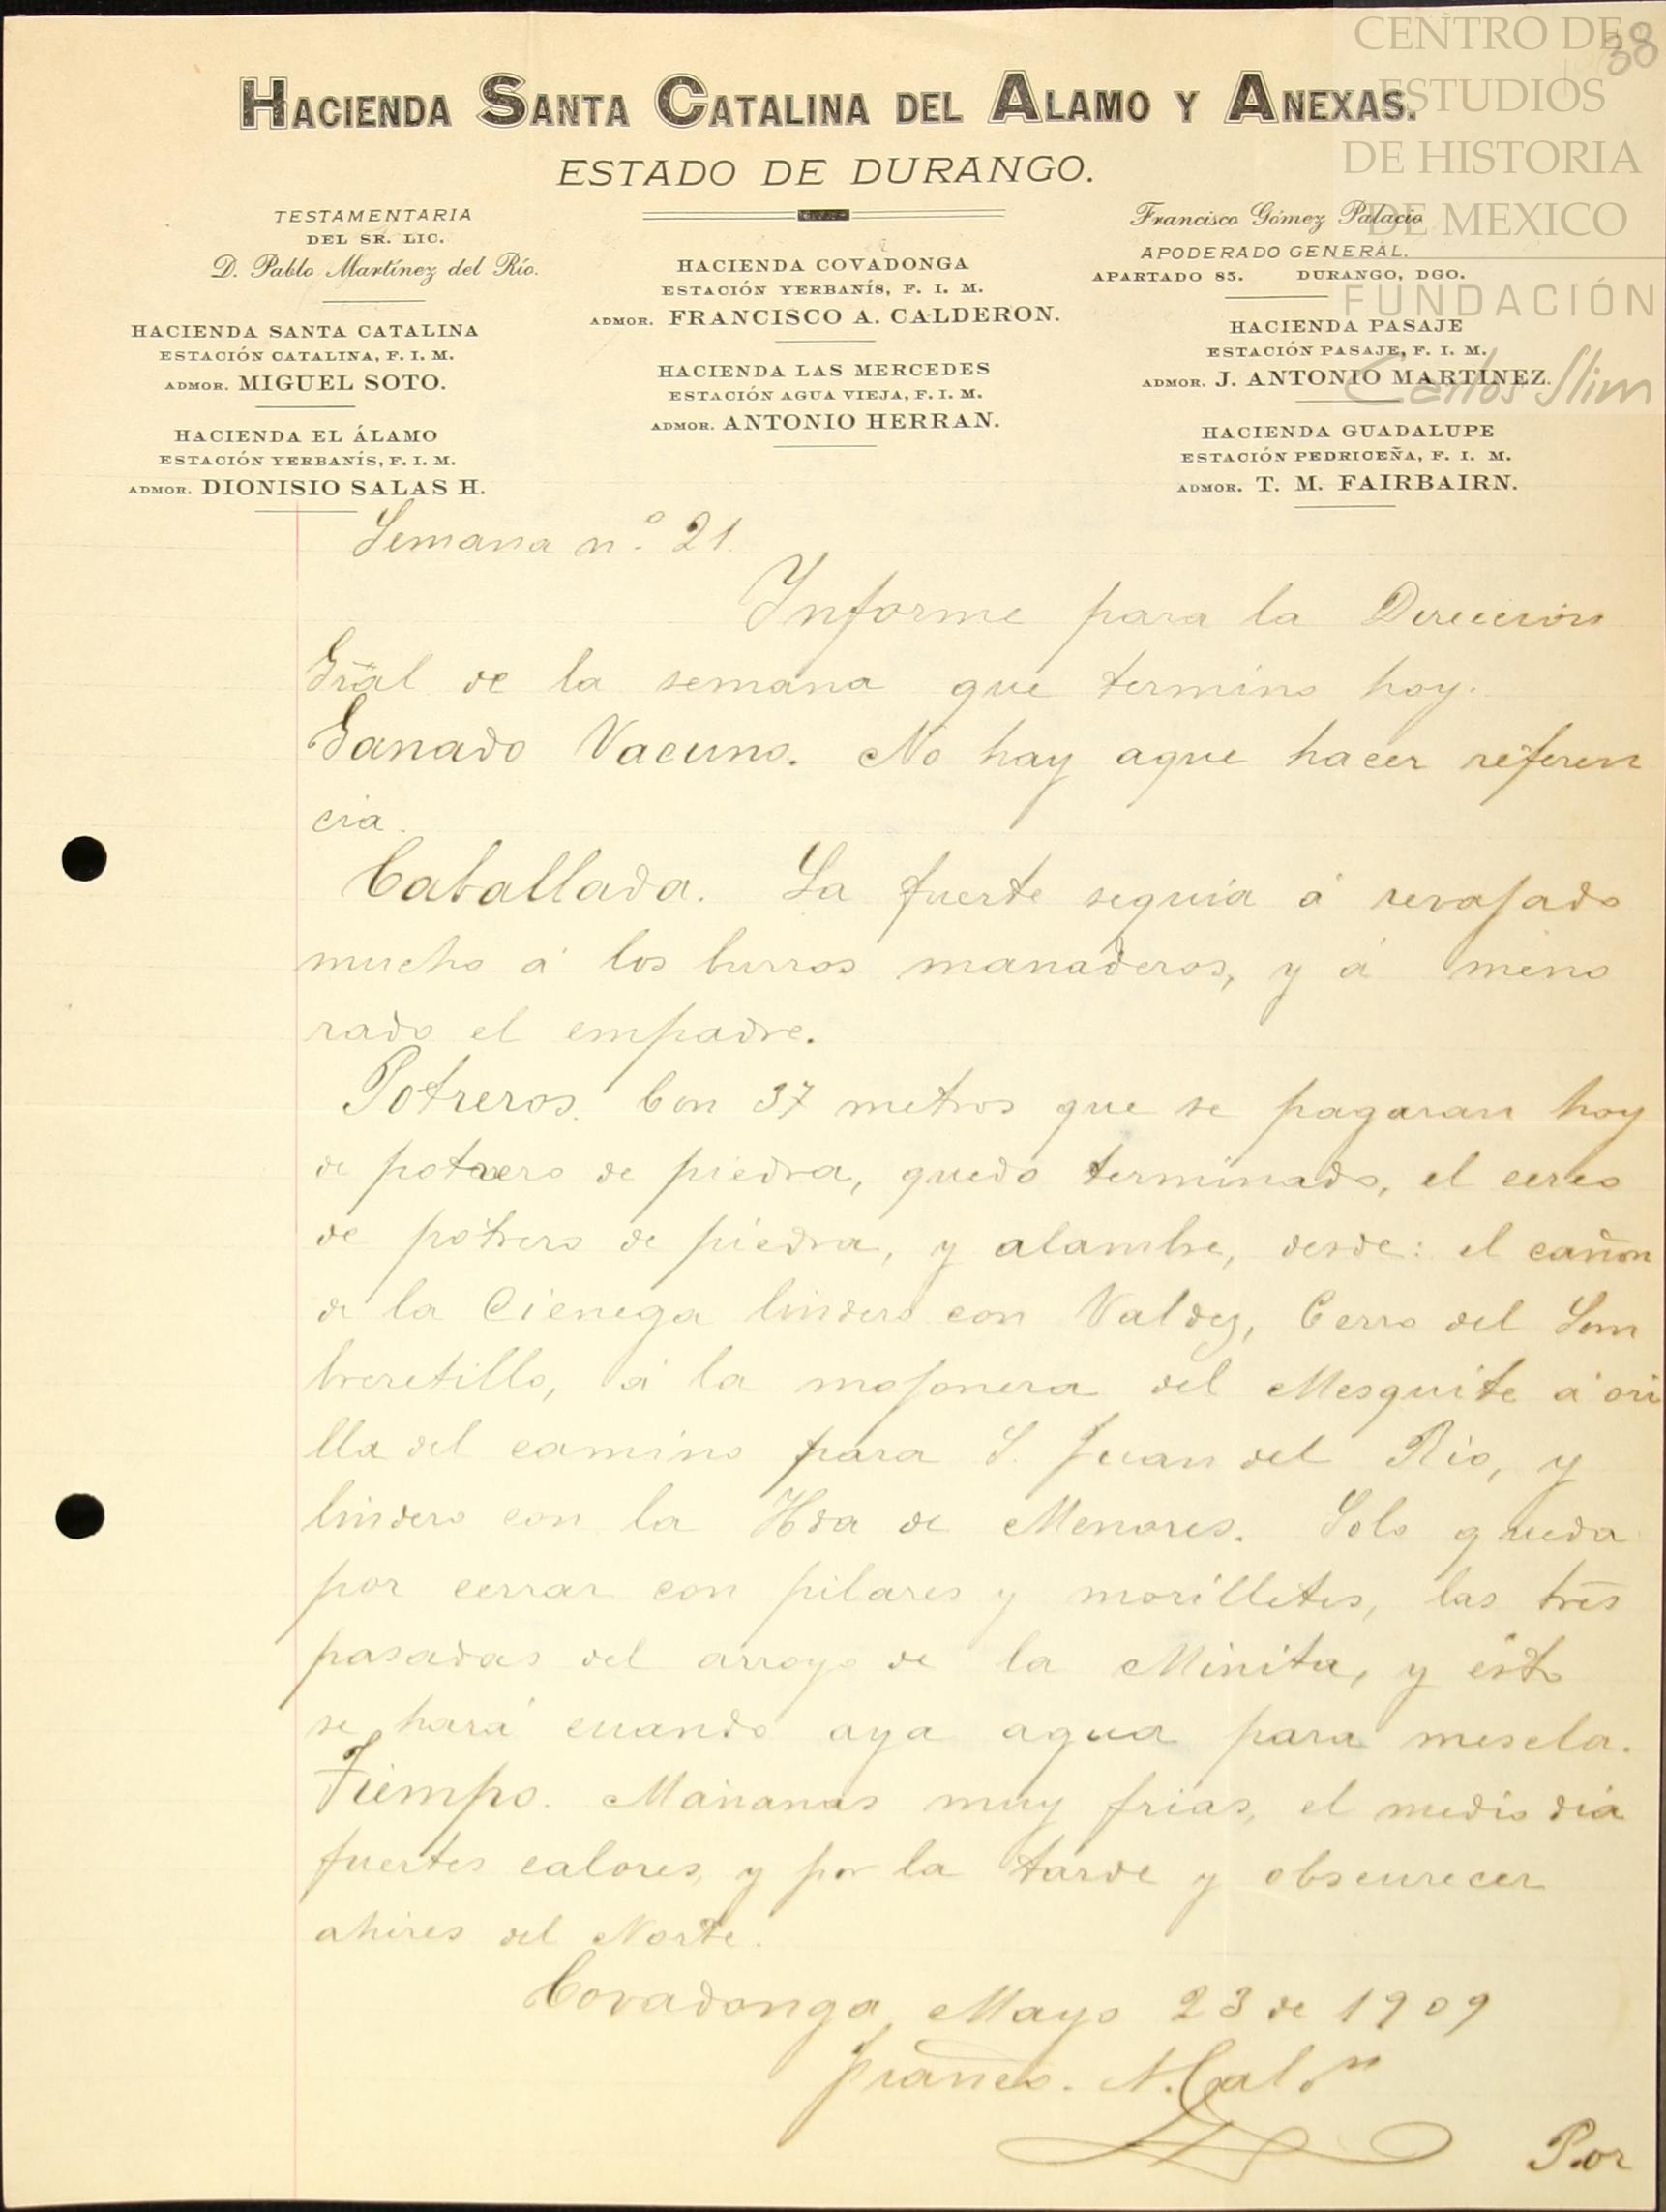 38
CENTRO DE
ESTUDIOS
DE HISTORIA
DE MEXICO
FUNDACIÓN
Carlos Slim
HACIENDA SANTA CATALINA DEL ALAMO Y ANEXAS.
ESTADO DE DURANGO.
TESTAMENTARIA
DEL SR. LIC.
D. Pablo Martínez del Río.
HACIENDA SANTA CATALINA
ESTACIÓN CATALINA, F. I. M.
ADMOR. MIGUEL SOTO.
HACIENDA EL ÁLAMO
ESTACIÓN YERBANÍS, F. I. M.
ADMOR. DIONISIO SALAS H.
HACIENDA COVADONGA
ESTACIÓN YERBANÍS, F. I. M.
ADMOR. FRANCISCO A. CALDERON.
HACIENDA LAS MERCEDES
ESTACIÓN AGUA VIEJA, F. I. M.
ADMOR. ANTONIO HERRAN.
Francisco Gómez Palacio
APODERADO GENERAL.
APARTADO 85. DURANGO, DGO.
HACIENDA PASAJE
ESTACIÓN PASAJE, F. I. M.
ADMOR. J. ANTONIO MARTÍNEZ.
HACIENDA GUADALUPE
ESTACIÓN PEDRICEÑA, F. I. M.
ADMOR. T. M. FAIRBAIRN.
Semana n.º 21.
Informe para la Dirección
Gral de la semana que termino hoy.
Ganado Vacuno. No hay aque hacer referen
cia.
Caballada. La fuerte seguia á revajado
mucho á los burros manaderos, y á meno
rado el empadre.
Potreros. Con 37 metros que se pagaran hoy
de potrero de piedra, quedo terminado, el cerco
de potrero de piedra, y alambre, desde: el cañon
de la Cienega lindero con Valdez, Cerro del Som
breretillo, á la mojonera del Mesquite á ori
lla del camino para S. Juan del Rio, y
lindero con la Hda de Menores. Solo queda
por cerrar con pilares y morilletes, las tres
pasadas del arroyo de la Minita, y ésto
se hará cuando aya agua para mescla.
Tiempo. Mañanas muy frias, el medio dia
fuertes calores, y por la tarde y obscurecer
ahires del Norte.
Covadonga, Mayo 23 de 1909
Por